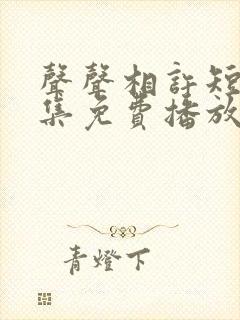 聲聲相許短
集免費播放
青燈下